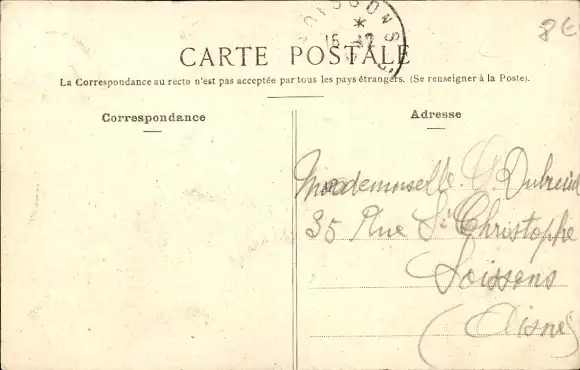 SOISSONS
*
15 - 12
8€
CARTE POSTALE
La Correspondance au recto n'est pas acceptée par tous les pays étrangers. (Se renseigner à la Poste).
Correspondance
Adresse
Mademoiselle G. Dubreuil
35 Rue St Christophe
Soissons
(Aisne)